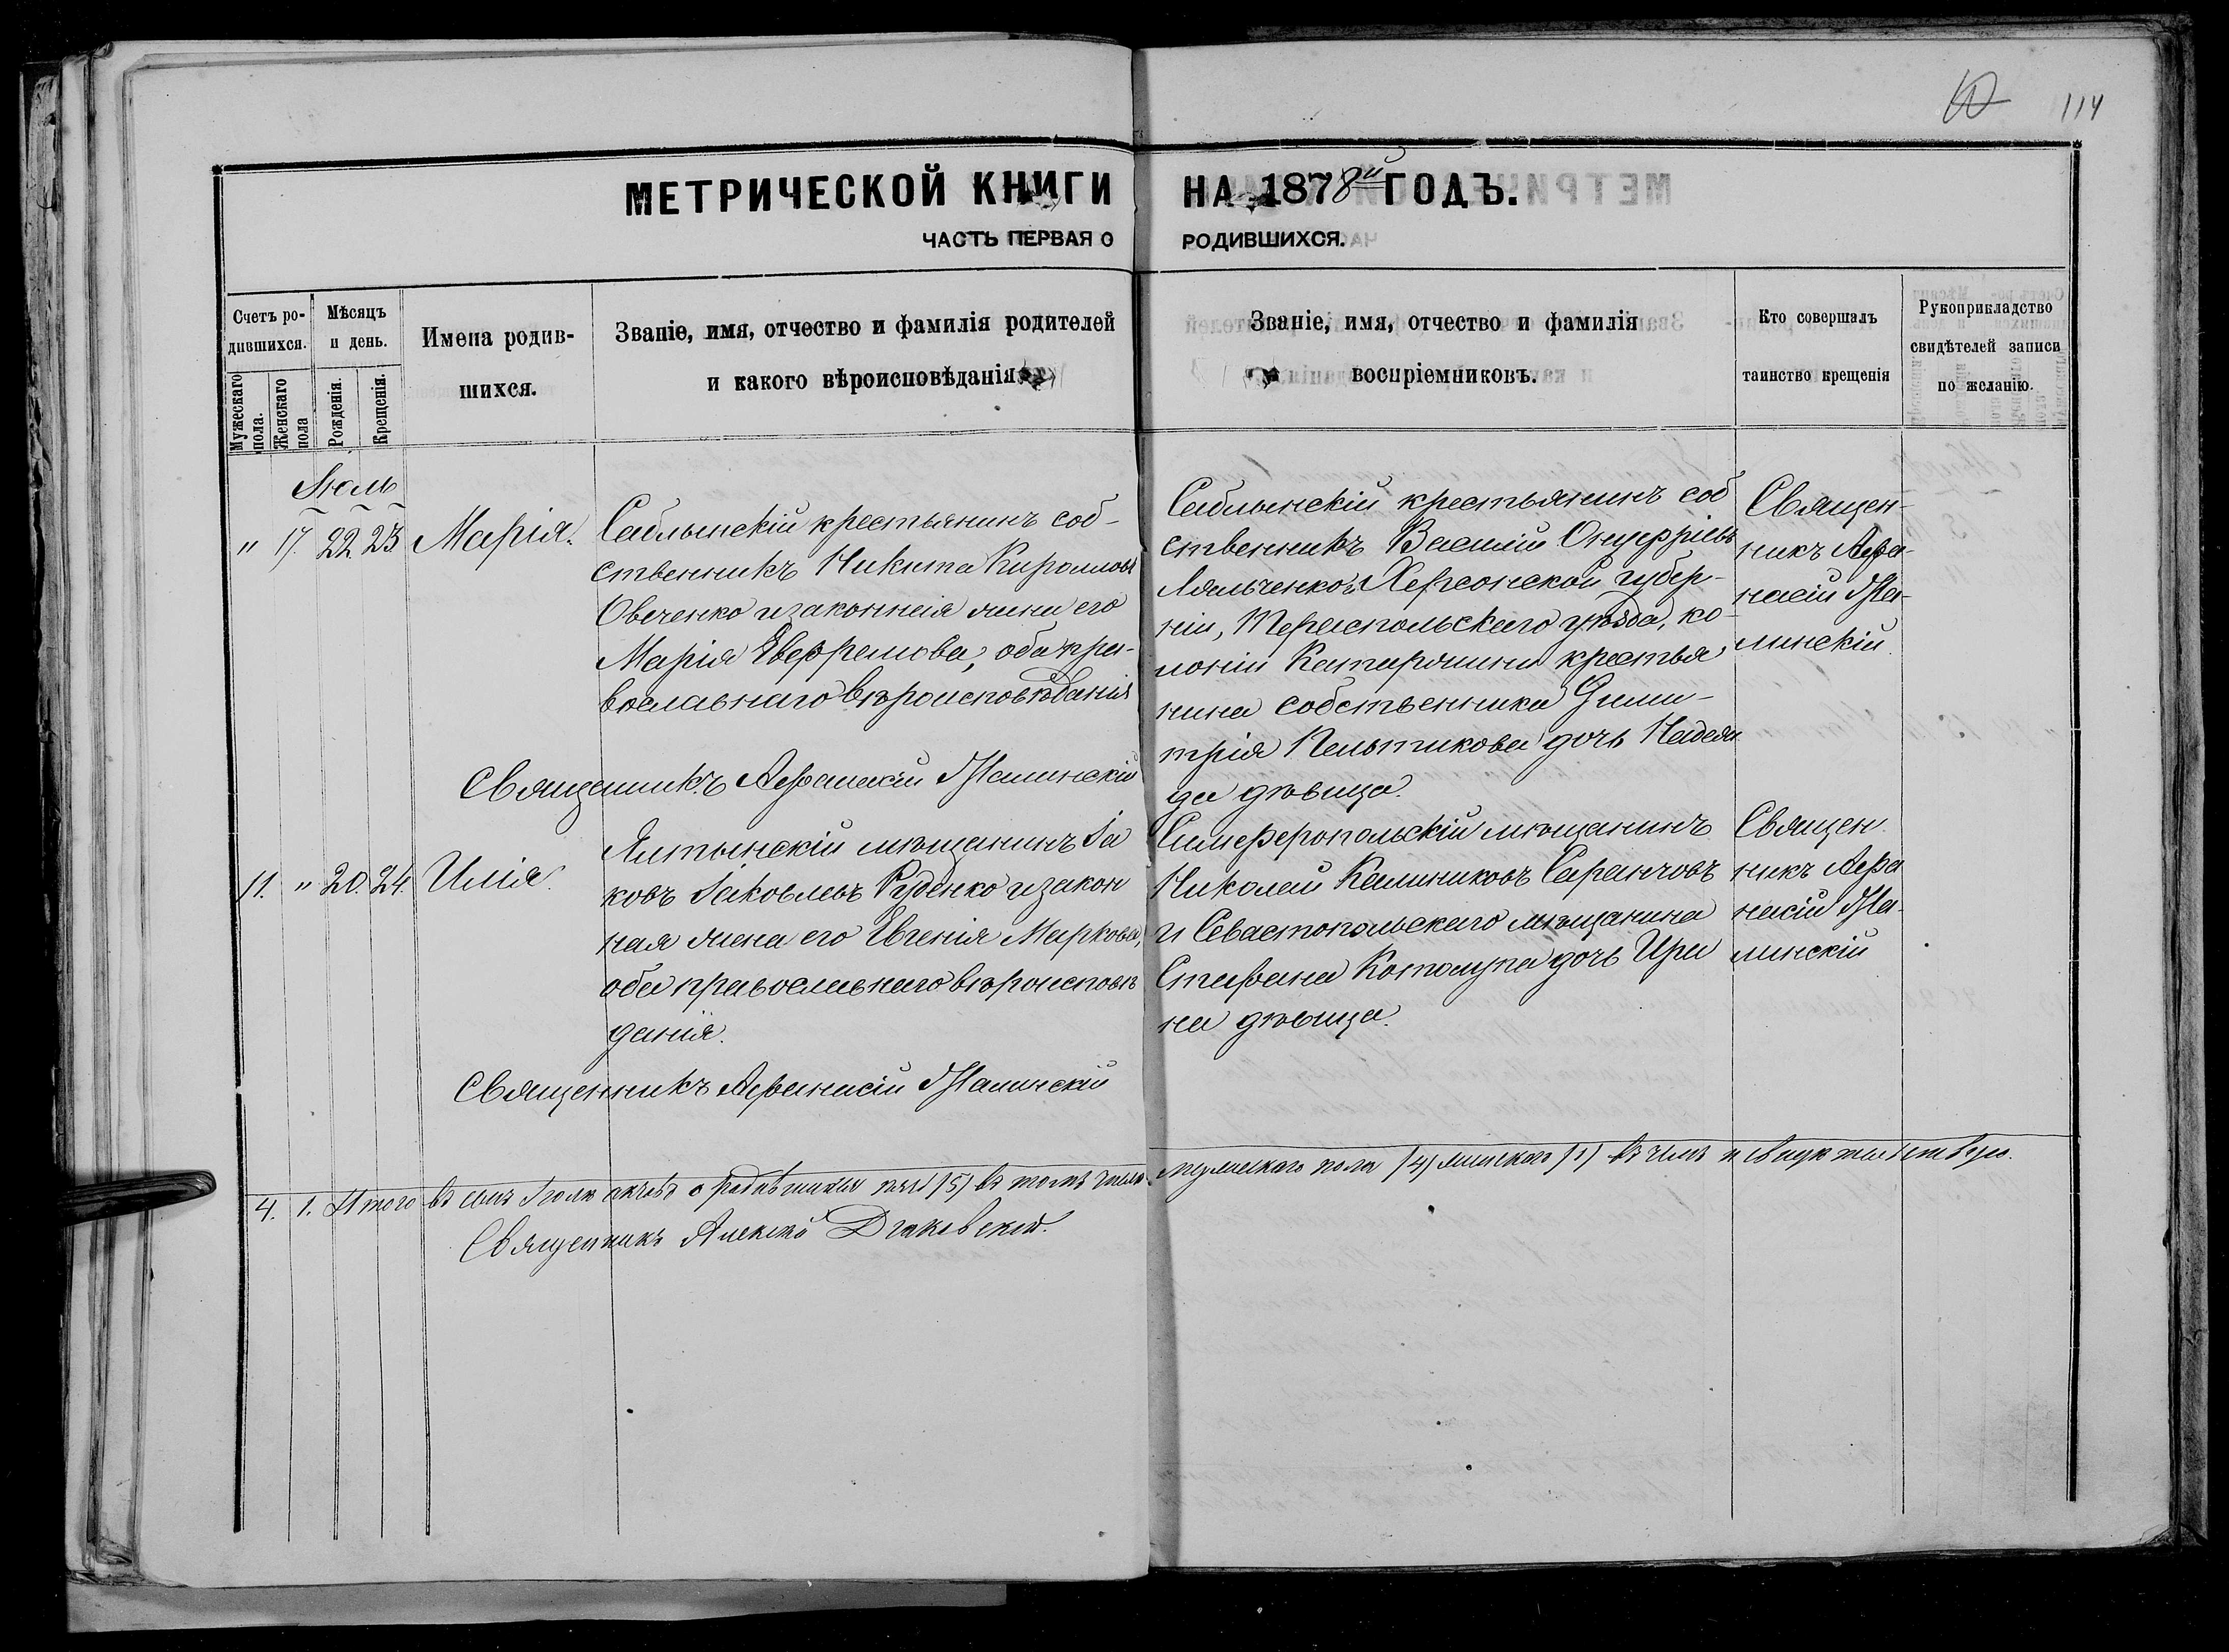 114
МЕТРИЧЕСКОЙ КНИГИ НА 1878й ГОДЪ.
ЧАСТЬ ПЕРВАЯ О РОДИВШИХСЯ.
Счетъ ро-
дившихся.
Мужескаго
пола.
Женскаго
пола
Мѣсяцъ
и день.
Рожденія.
Крещенія.
Имена родив-
шихся.
Званіе, имя, отчество и фамилія родителей
и какого вѣроисповѣданія
Званіе, имя, отчество и фамилія
воспріемниковъ.
Кто совершалъ
таинство крещенія
Рукоприкладство
свидѣтелей записи
по желанію.
Іюль
" 17. 22 23 Марія.
Саблынскій крестьянинъ соб-
ственникъ Никита Кирилловъ
Овченко и законная жена его
Марія Евфремова, оба пра-
вославнаго вѣроисповѣданія
Саблынскій крестьянинъ соб
ственникъ Василій Онуфріевъ
и Херсонской губер-
ніи, Тераспольскаго уѣзда, ко-
лоніи Катаржини крестья
нина собственника Дими-
трія дочь Надеж
да дѣвица.
Священ-
никъ Афа-
насій
линскій
Священникъ Афанасій
11. " 20. 24. Илія.
Ялтынскій мѣщанинъ Іа
ковъ Іаковлевъ Руденко и закон
ная жена его Евгенія Маркова,
оба православнаго вѣроисповѣ
данія.
Симферопольскій мѣщанинъ
Николай Калиниковъ Саранчовъ
и Севастопольскаго мѣщанина
Стефана дочь Ири
на дѣвица.
Священ
никъ Афа
насій
линскій
Священникъ Афанасій
4. 1. Итого въ Іюлѣ о родившихся пять (5) въ томъ числѣ мужескаго пола (4) женскаго (1) въ чемъ и свидѣтельствую.
Священникъ Алексѣй